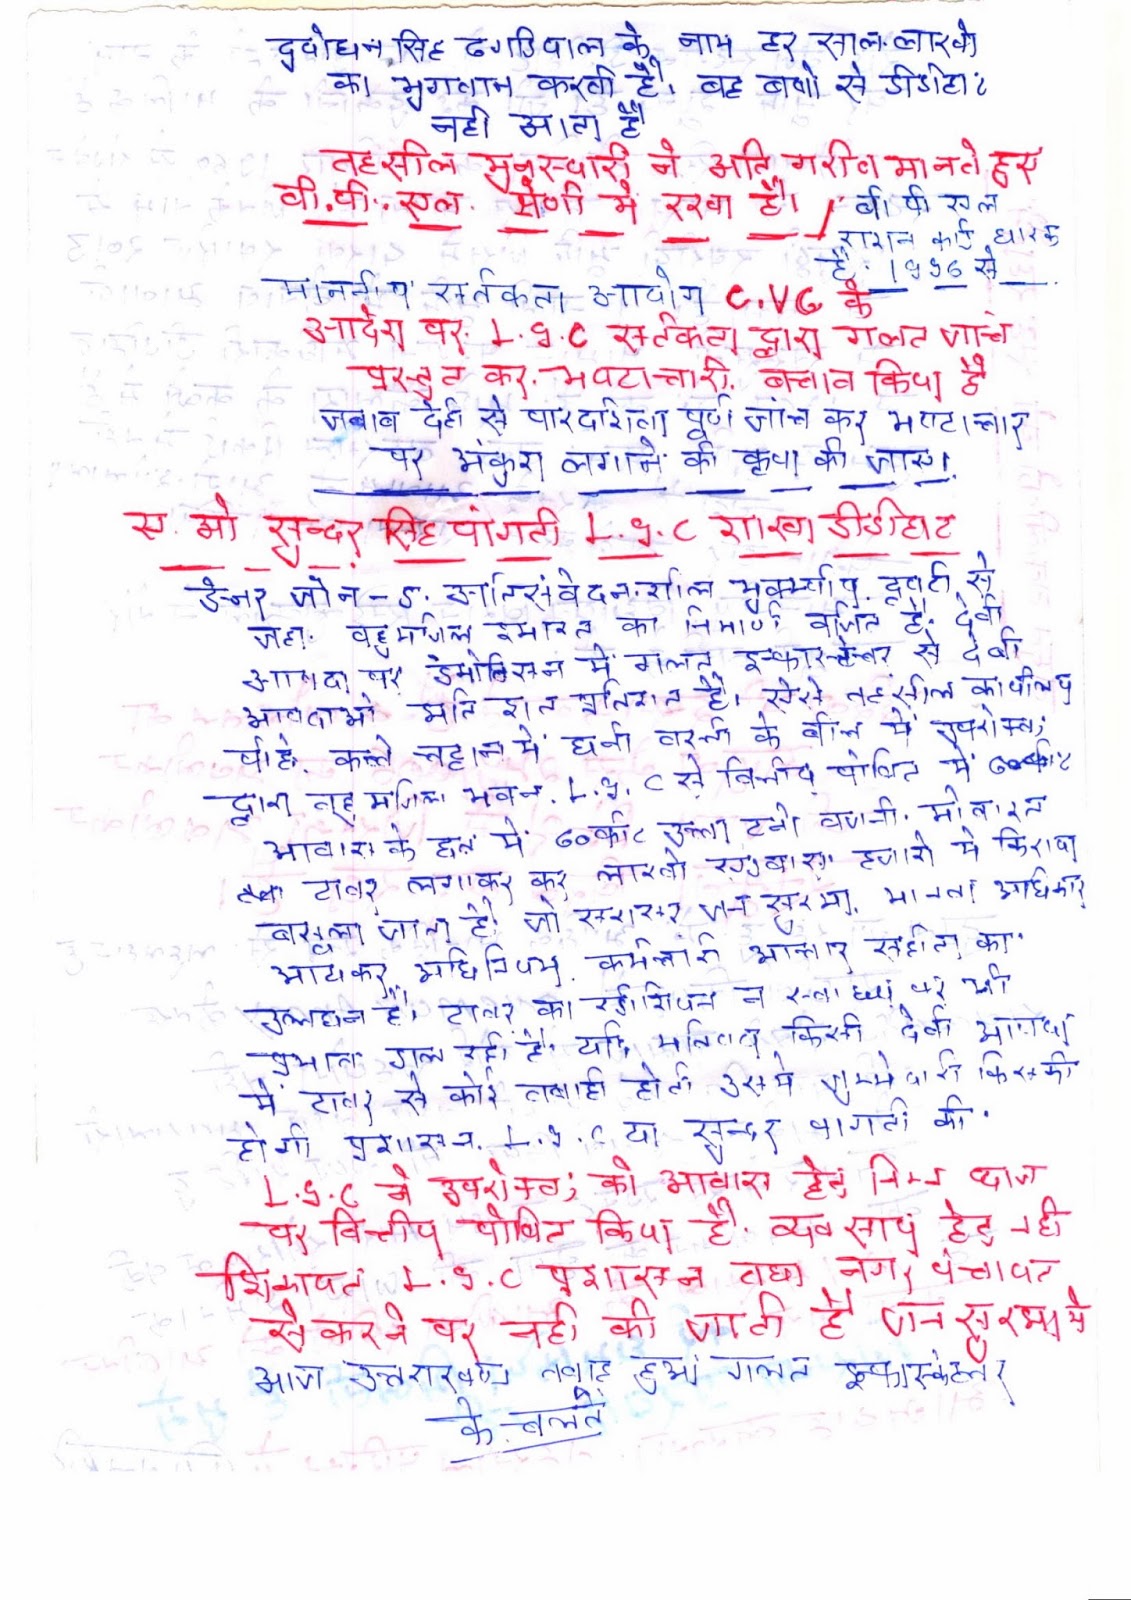 दुर्योधन सिंह ढगडियाल के नाम हर साल लारवो
का भुगतान करती है। वह वर्षो से डीडीहाट
नही आता है
तहसील मुनस्यारी ने अति गरीब मानते हुए
वी.पी. एल. श्रेणी में रखा है। / बी पी एल
राशन कार्ड धारक
है. 1996 से
माननीय सर्तकता आयोग C.V.G के
आदेश पर L.I.C सर्तकता द्वारा गलत जांच
प्रस्तुत कर. भ्रष्टाचारी. बचाव किया है
जवाब देही से पारदर्शिता पूर्ण जांच कर भ्रष्टाचार
पर अंकुश लगाने की कृपा की जाए।
स. मो सुन्दर सिंह पांगती L.I.C शाखा डीडीहाट
डेन्जर जोन - 5. अतिसंवेदनशील भूकम्पीय दृष्टी से
जहा. वहुमंजिल इमारत का निर्माण वर्जित है. देवी
आपदा पर में गलत से देवी
आपदाओ शत प्रतिशत है। ऐसे तहसील कार्यालय
पीछे. कच्चे चट्टान में घनी वस्ती के बीच में उपरोक्त;
द्वारा वहु मंजिला भवन. L.I.C से वित्तीय पोषित में
आवास के छत में टनो वजनी.
तथा टावर लगाकर कर लारवो हजारो में किराया
वसूला जाता है। जो सरासर जन सुरक्षा. अधिकार
आयकर अधिनियम. कर्मचारी आचार संहिता का
उल्लंघन है। टावर का रेडीशियन न स्वास्थ्य पर भी
प्रभाव डाल रही है. यदि भविष्य किसी देवी आपदा
में टावर से कोई तवाही होती उसमे जुम्मेदारी किसकी
होगी प्रशासन. L.I.C या सुन्दर पांगती की.
L.I.C ने उपरोक्त; को आवास हेतु निम्न व्याज
पर वित्तीय पोषित किया है. व्यवसाय हेतु नही
शिकायत L.I.C प्रशासन तथा नगर पंचायत
से करने पर नही की जाती है जन सुरक्षा मे
आज उत्तराखण्ड तवाह हुआ गलत
के चलते